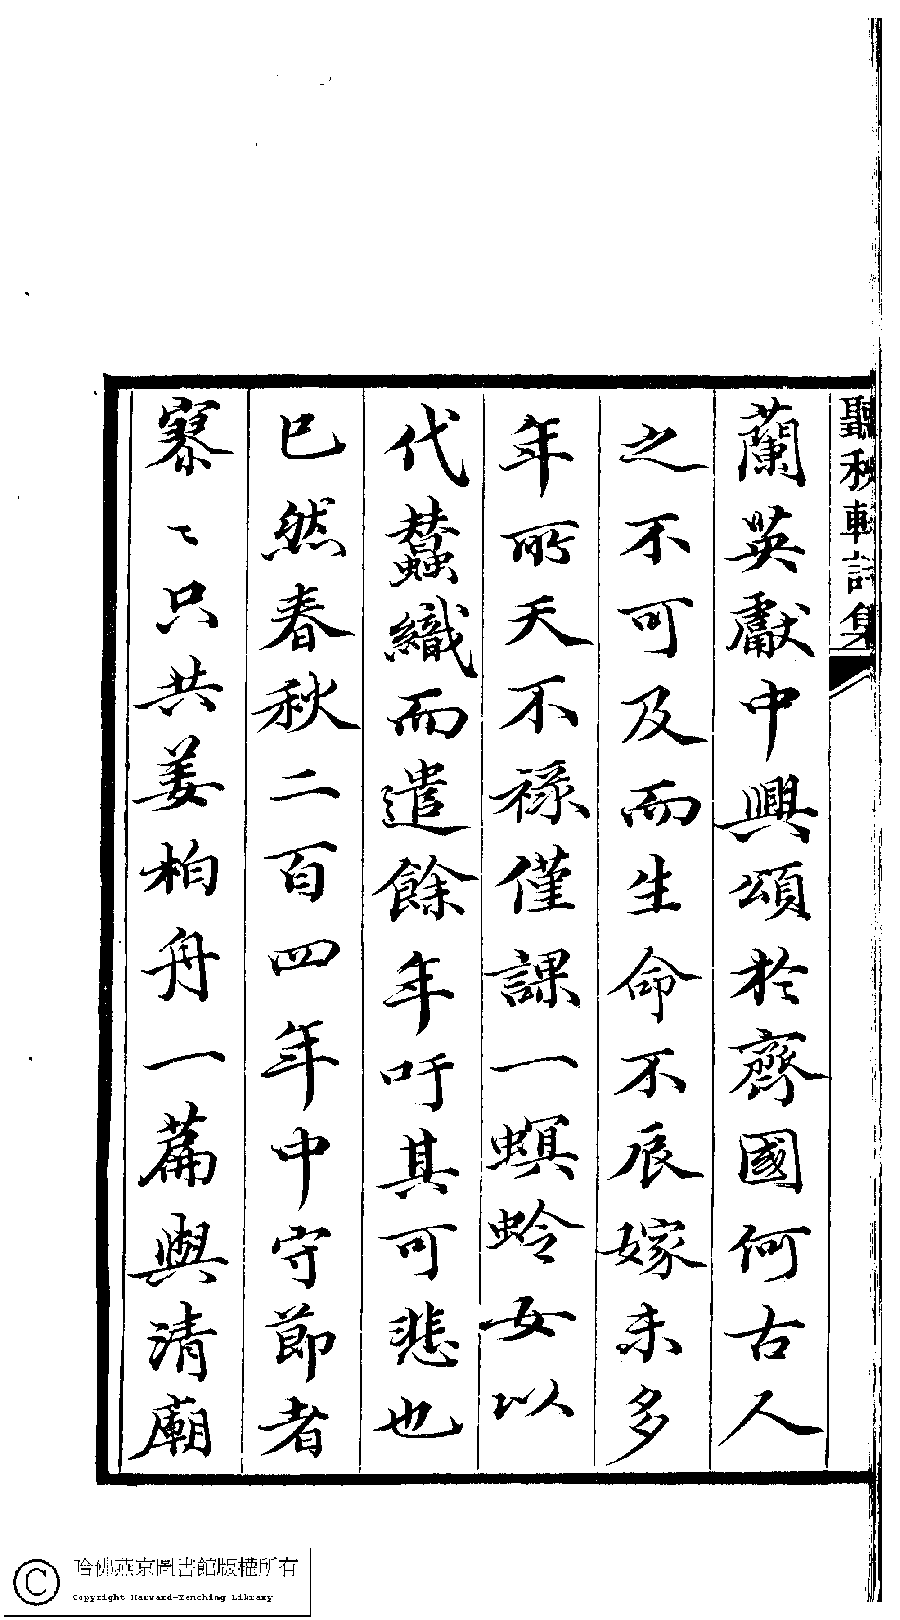 聽秋軒詩集
蘭英獻中興頌於齊國何古人
之不可及而生命不辰嫁未多
年所天不祿僅課一螟蛉女以
代蠶織而遣餘年吁其可悲也
已然春秋二百四年中守節者
寥〻只共姜柏舟一篇與清廟
哈佛燕京圖書館版權所有
Copyright Harvard-Yenching Library